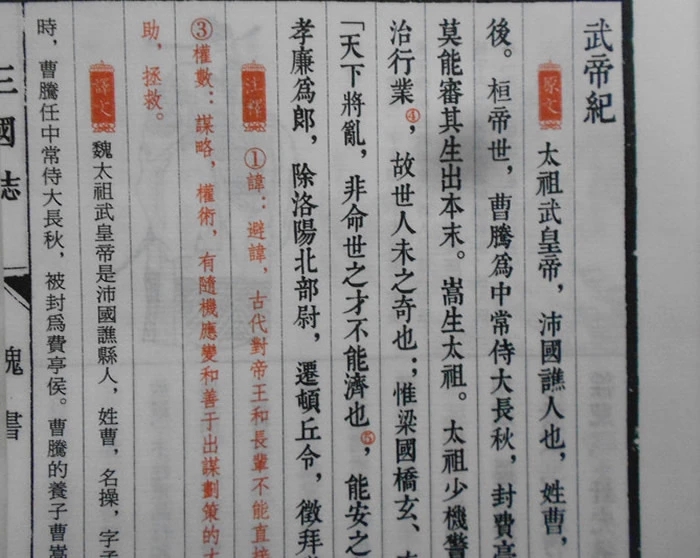 武帝紀
原文 太祖武皇帝，沛國譙人也，姓曹，
後。桓帝世，曹騰爲中常侍大長秋，封費亭
莫能審其生出本末。嵩生太祖。太祖少機警
治行業④，故世人未之奇也；惟梁國橋玄、
「天下將亂，非命世之才不能濟也⑤，能安之
孝廉爲郎，除洛陽北部尉，遷頓丘令，徵拜
注釋 ①諱：避諱，古代對帝王和長輩不能直接
③權數：謀略，權術，有隨機應變和善于出謀劃策的
助，拯救。
譯文 魏太祖武皇帝是沛國譙縣人，姓曹，名操，字孟
時，曹騰任中常侍大長秋，被封爲費亭侯。曹騰的養子曹嵩
三國志
魏書